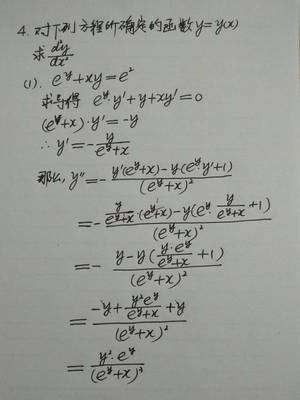 4. 对下列方程所确定的函数y=y(x)
求 d²y/dx²
(1). e^y+xy=e²
求导得 e^y·y'+y+xy'=0
(e^y+x)·y'=-y
∴ y'=-y/(e^y+x)
那么, y''=-[y'(e^y+x)-y(e^y·y'+1)]/(e^y+x)²
=-[y/(e^y+x)·(e^y+x)-y(e^y·y/(e^y+x)+1)]/(e^y+x)²
=-[y-y(y·e^y/(e^y+x)+1)]/(e^y+x)²
=[-y+y²e^y/(e^y+x)+y]/(e^y+x)²
=y²·e^y/(e^y+x)³